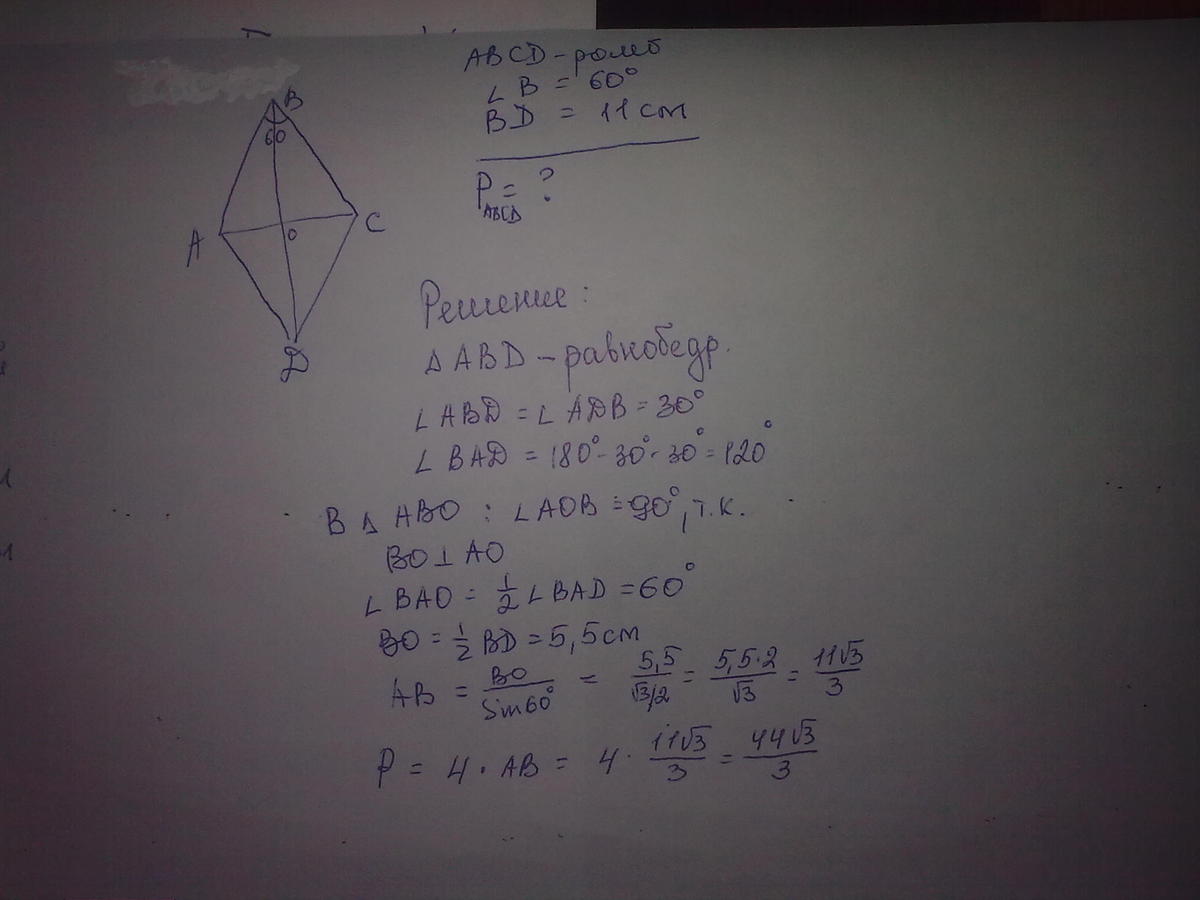 ABCD - ромб
∠ B = 60°
BD = 11 см
P_ABCD = ?
B
60
A
O
C
D
Решение:
Δ ABD - равнобедр.
∠ ABD = ∠ ADB = 30°
∠ BAD = 180° - 30° - 30° = 120°
В Δ ABO : ∠AOB = 90°, т.к.
BO ⊥ AO
∠ BAO = 1/2 ∠ BAD = 60°
BO = 1/2 BD = 5,5 см
AB = BO/sin60° = 5,5/(√3/2) = 5,5·2/√3 = 11√3/3
P = 4 · AB = 4 · 11√3/3 = 44√3/3